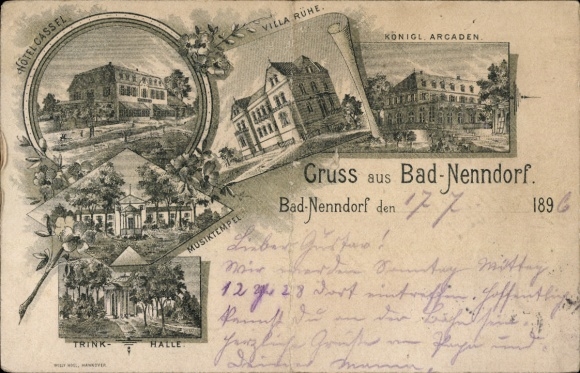 HÔTEL CASSEL.
VILLA RÜHE.
KÖNIGL. ARCADEN.
MUSIKTEMPEL
TRINK- HALLE.
Gruss aus Bad-Nenndorf.
Bad-Nenndorf den 17 7 1896
Lieber Gustav!
Wir werden Sonntag Mittag
12 28 dort eintreffen. Hoffentlich
kommst du an die Bahn
herzliche Grüße an Papa und
Deiner Mama.